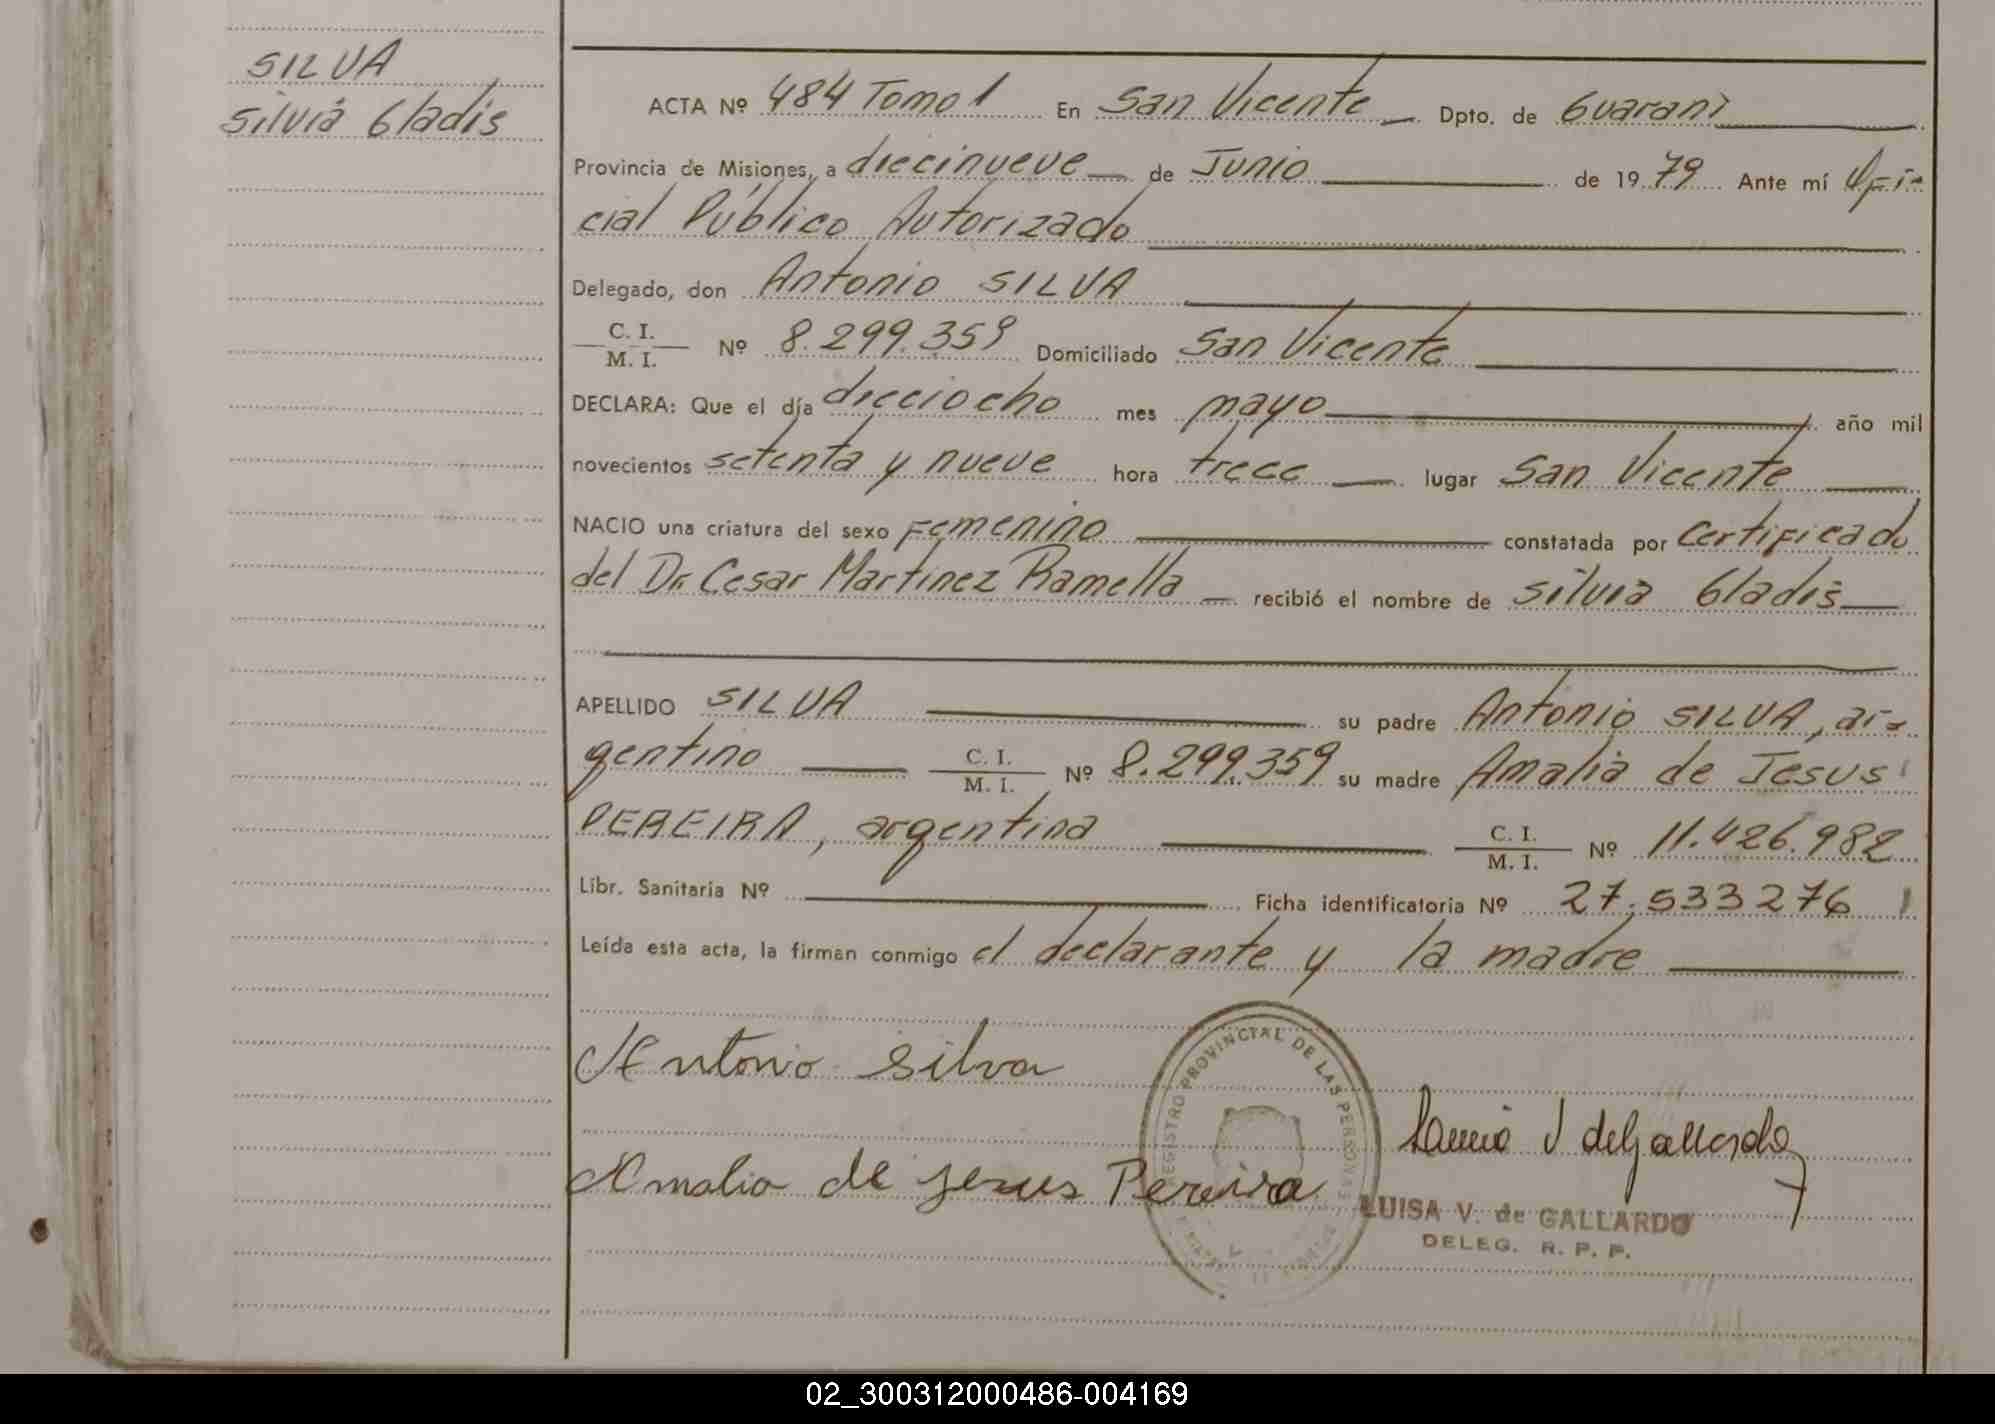 SILVA
Silvia Gladis
ACTA Nº 484 Tomo 1 En San Vicente Dpto. de Guaraní
Provincia de Misiones, a diecinueve de Junio de 1979 Ante mí Ofi-
cial Público Autorizado
Delegado, don Antonio SILVA
C. I.
M. I. Nº 8.299.359 Domiciliado San Vicente
DECLARA: Que el día dieciocho mes mayo año mil
novecientos setenta y nueve hora trece lugar San Vicente
NACIO una criatura del sexo Femenino constatada por Certificado
del Dr. Cesar Martinez Ramella recibió el nombre de Silvia Gladis
APELLIDO SILVA su padre Antonio SILVA, ar-
gentino C. I. M. I. Nº 8.299.359 su madre Amalia de Jesus
PEREIRA, argentina C. I. M. I. Nº 11.426.982
Libr. Sanitaria Nº Ficha identificatoria Nº 27.533276
Leída esta acta, la firman conmigo el declarante y la madre
Antonio Silva
REGISTRO PROVINCIAL DE LAS PERSONAS
Amalia de Jesus Pereira
V de Gallardo
LUISA V. de GALLARDO
DELEG. R. P. P.
02_300312000486-004169